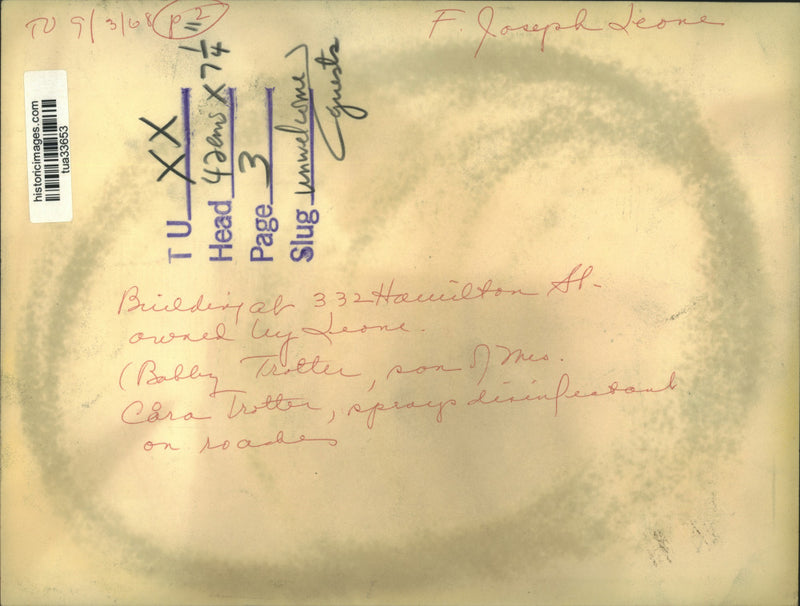 TU 9/3/68 p2
F. Joseph Leone
historicimages.com
tua33653
TU XX
Head 42ems x 7 1/4"
Page 3
Slug unwelcome
guests
Building at 332 Hamilton St.
owned by Leone.
(Bobby Trotter, son of Mrs.
Cara Trotter, sprays disinfectant
on roaches